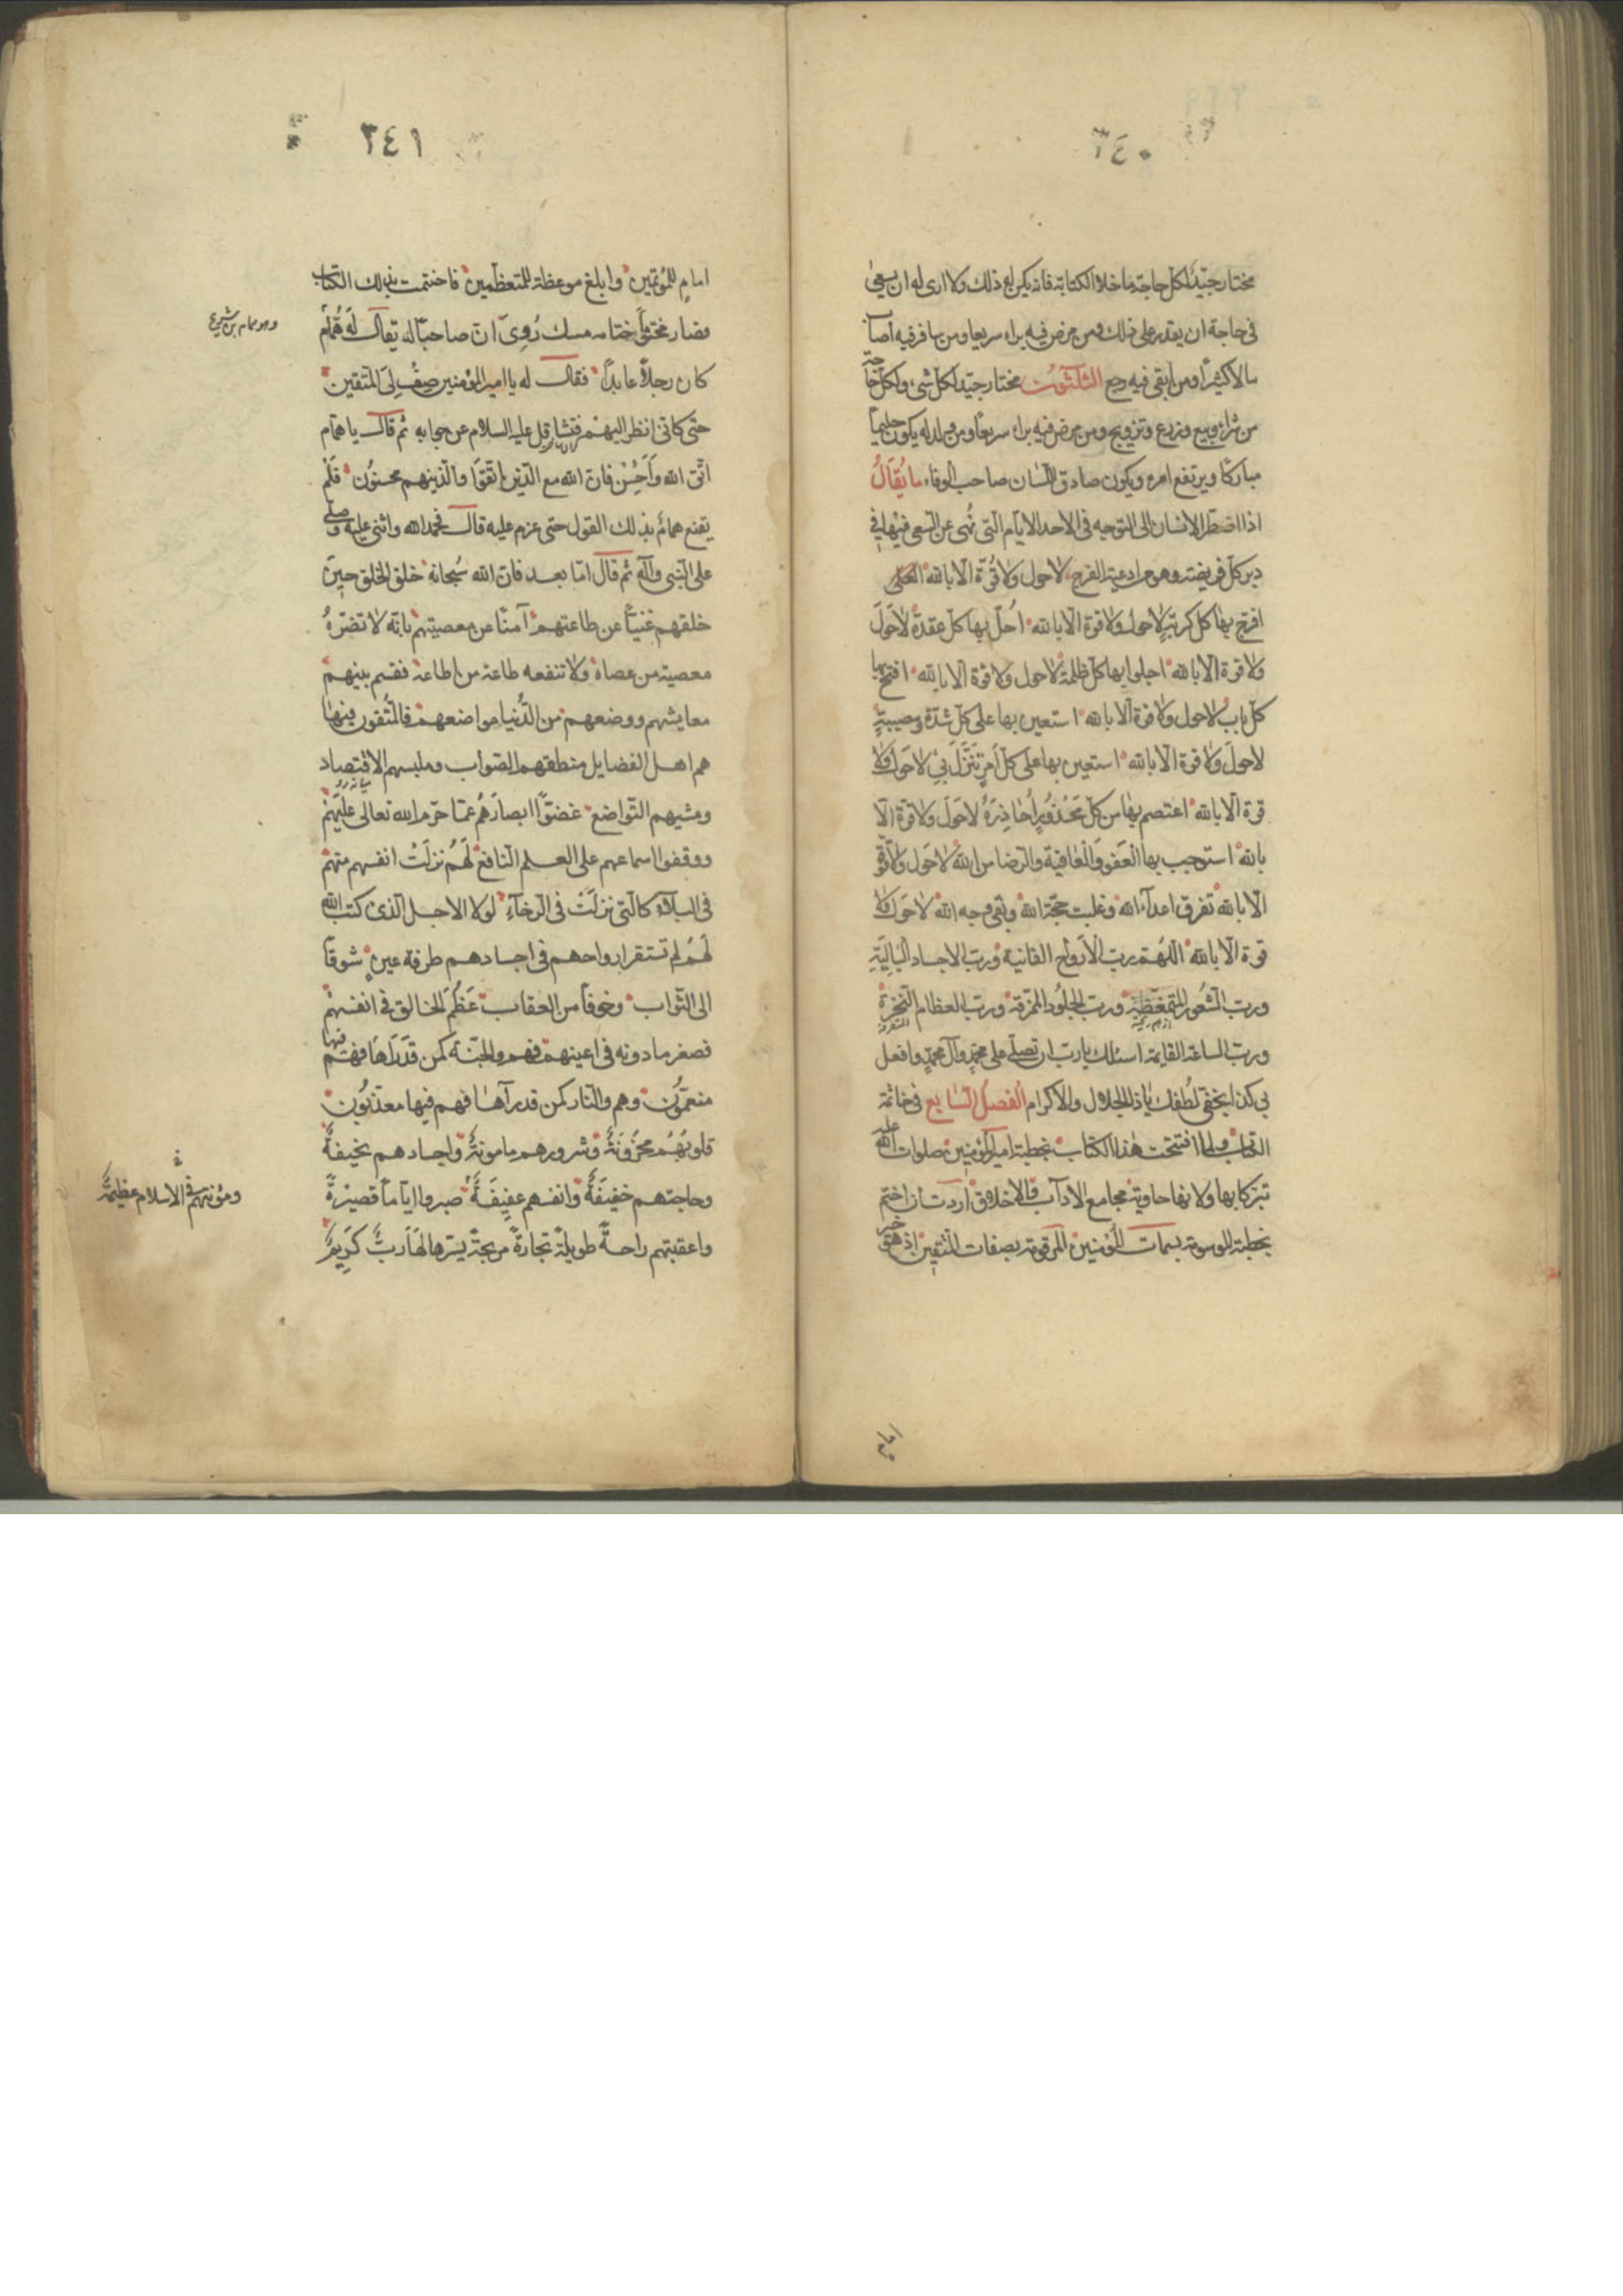 ٣٤٠
مختار جيّد لكل حاجة ما خلا الكتابة فانه يكره له ذلك ولا ارى له ان يسعى
فى حاجة ان يقدر على ذلك ومن مرض فيه براء سريعا ومن سافر فيه اصا
مالا كثيرا ومن ابق فيه رجع الثلثون مختار جيّد لكل شئ ولكل حاجة
من شراء وبيع وزرع وتزويج ومن مرض فيه براء سريعاً ومن ولد له يكون حليماً
مباركا ويرتفع امره ويكون صادق اللسان صاحب الوفاء ما يُقَالُ
اذا اضطرّ الانسان الى التوجه فى الاحد الايام التى نُهى عن السعى فيها فى
دبر كل فريضة وهو من ادعية الفرج لا حول ولا قُوّة الا بالله العلى
افرج بها كل كربة لا حول ولا قوة الا بالله احل بها كل عقدة لا حَولَ
ولا قوة الا بالله اجلو ابها كل ظلمة لا حول ولا قوة الا بالله افتح بها
كل باب لا حول ولا قوة الا بالله استعين بها على كل شدّة ومصيبةٍ
لا حولَ ولا قوة الا بالله استعين بها على كل اَمرٍ يَنَزّلَ بى لا حَول ولا
قوة الا بالله اعتصم بها من كل مَحْذُورٍ اُحَاذِرَهُ لا حَولَ ولا قوة الا
بالله استوجب بها العَفو وَالعَافية والرضا من الله لا حَول ولا قو
الا بالله تفرق اعداء الله وغلبت حجّة الله وبقى وجه الله لا حَول ولا
قوة الا بالله اللهم رب الاَرواح الفانية ورب الاجساد البَالِيَةِ
وربّ الشعور المتمعّطة وربّ الجلُود الممزقة وربّ العظام النخرة
وربّ الساعة القايمة اسئلك يا ربّ ان تصلّى على محمّدٍ وآل محمّدٍ وافعل
بى كذا بخفى لُطفك يا ذا الجلال والاكرام الفصل السّابع فى خاتمة
الكتاب ولما افتتحت هذا الكتاب بخطبة امير المؤمنين صلوات الله عليه
تبرّكا بها ولانها حاوية مجامع الآداب والاخلاق اردت ان اختم
بخطبة الموسومة بسمات المؤمنين المرقومة بصفات المتّقين اذ هى خير
٣٤١
امامٍ للمُؤتمين وابلغ موعظة للمتعظين فاختتمت بذلك الكتاب
فصار مختوماً ختامه مسك رُوِىَ ان صاحبا له يقال لَه هُمام
وهو همام بن شريح
كان رجلاً عابداً فقال له يا امير المؤمنين صِف لى المتقين
حتى كانّى انظر اليهم فتثاقل عليه السلام عن جوابه ثم قال يا همام
اتّق الله وَاَحْسِنْ فان الله مع الذين اتّقوَا والذين هم محسنُون فَلَمْ
يقنع همام بذلك القول حتى عزم عليه قال فحمد الله واثنى عليه وصلّى
على النّبى وآله ثم قال امّا بعد فان الله سُبحانه خلق الخلق حينَ
خلقهم غنيّاً عن طاعتهم آمنًا من معصيتهم بانّه لا تضرّهُ
معصية من عصاه ولا تنفعه طاعة من اطاعه فقسم بينهم
معايشهم ووضعهم من الدُّنيا مواضعهم فالمتُقون فيها
هم اهل الفضايل منطقهم الصّواب وملبسهم الاقتصاد
ومشيهم التّواضع غضوّا ابصارَهُم عمّا حرّم الله تعالى عليهم
ووقفوا اسماعهم على العلم النّافع لَهُم نزلَتْ انفسهم منهم
فى البلاء كالّتى نزلَتْ فى الرخآء لولا الاجل الّذى كتب الله
لَهُم لم تستقر ارواحهم فى اجسادهم طرفة عينٍ شوقاً
الى الثّواب وخوفاً من العقاب عَظُمَ الخالق فى انفسهم
فصغر مادونه فى اعينهم فهم والجنّة كمن قَدْ رَآهَا فهم فيها
منعمُّون وهم والنار كمن قد رآها فهم فيها معذّبُون
قلوبُهُم محزُونَةٌ وشرورهم مامونةٌ واجسادهم نحيفةٌ
وحاجتهم خفيفَةٌ وانفسهم عفيفَةٌ صبروا ايّاماً قصيرةً
ومؤنتهم فى الاسلام عظيمةٌ
واعقبتهم راحةً طويلةً تجارةً مربحةً يسّرها لهم ربٌّ كريمٌ